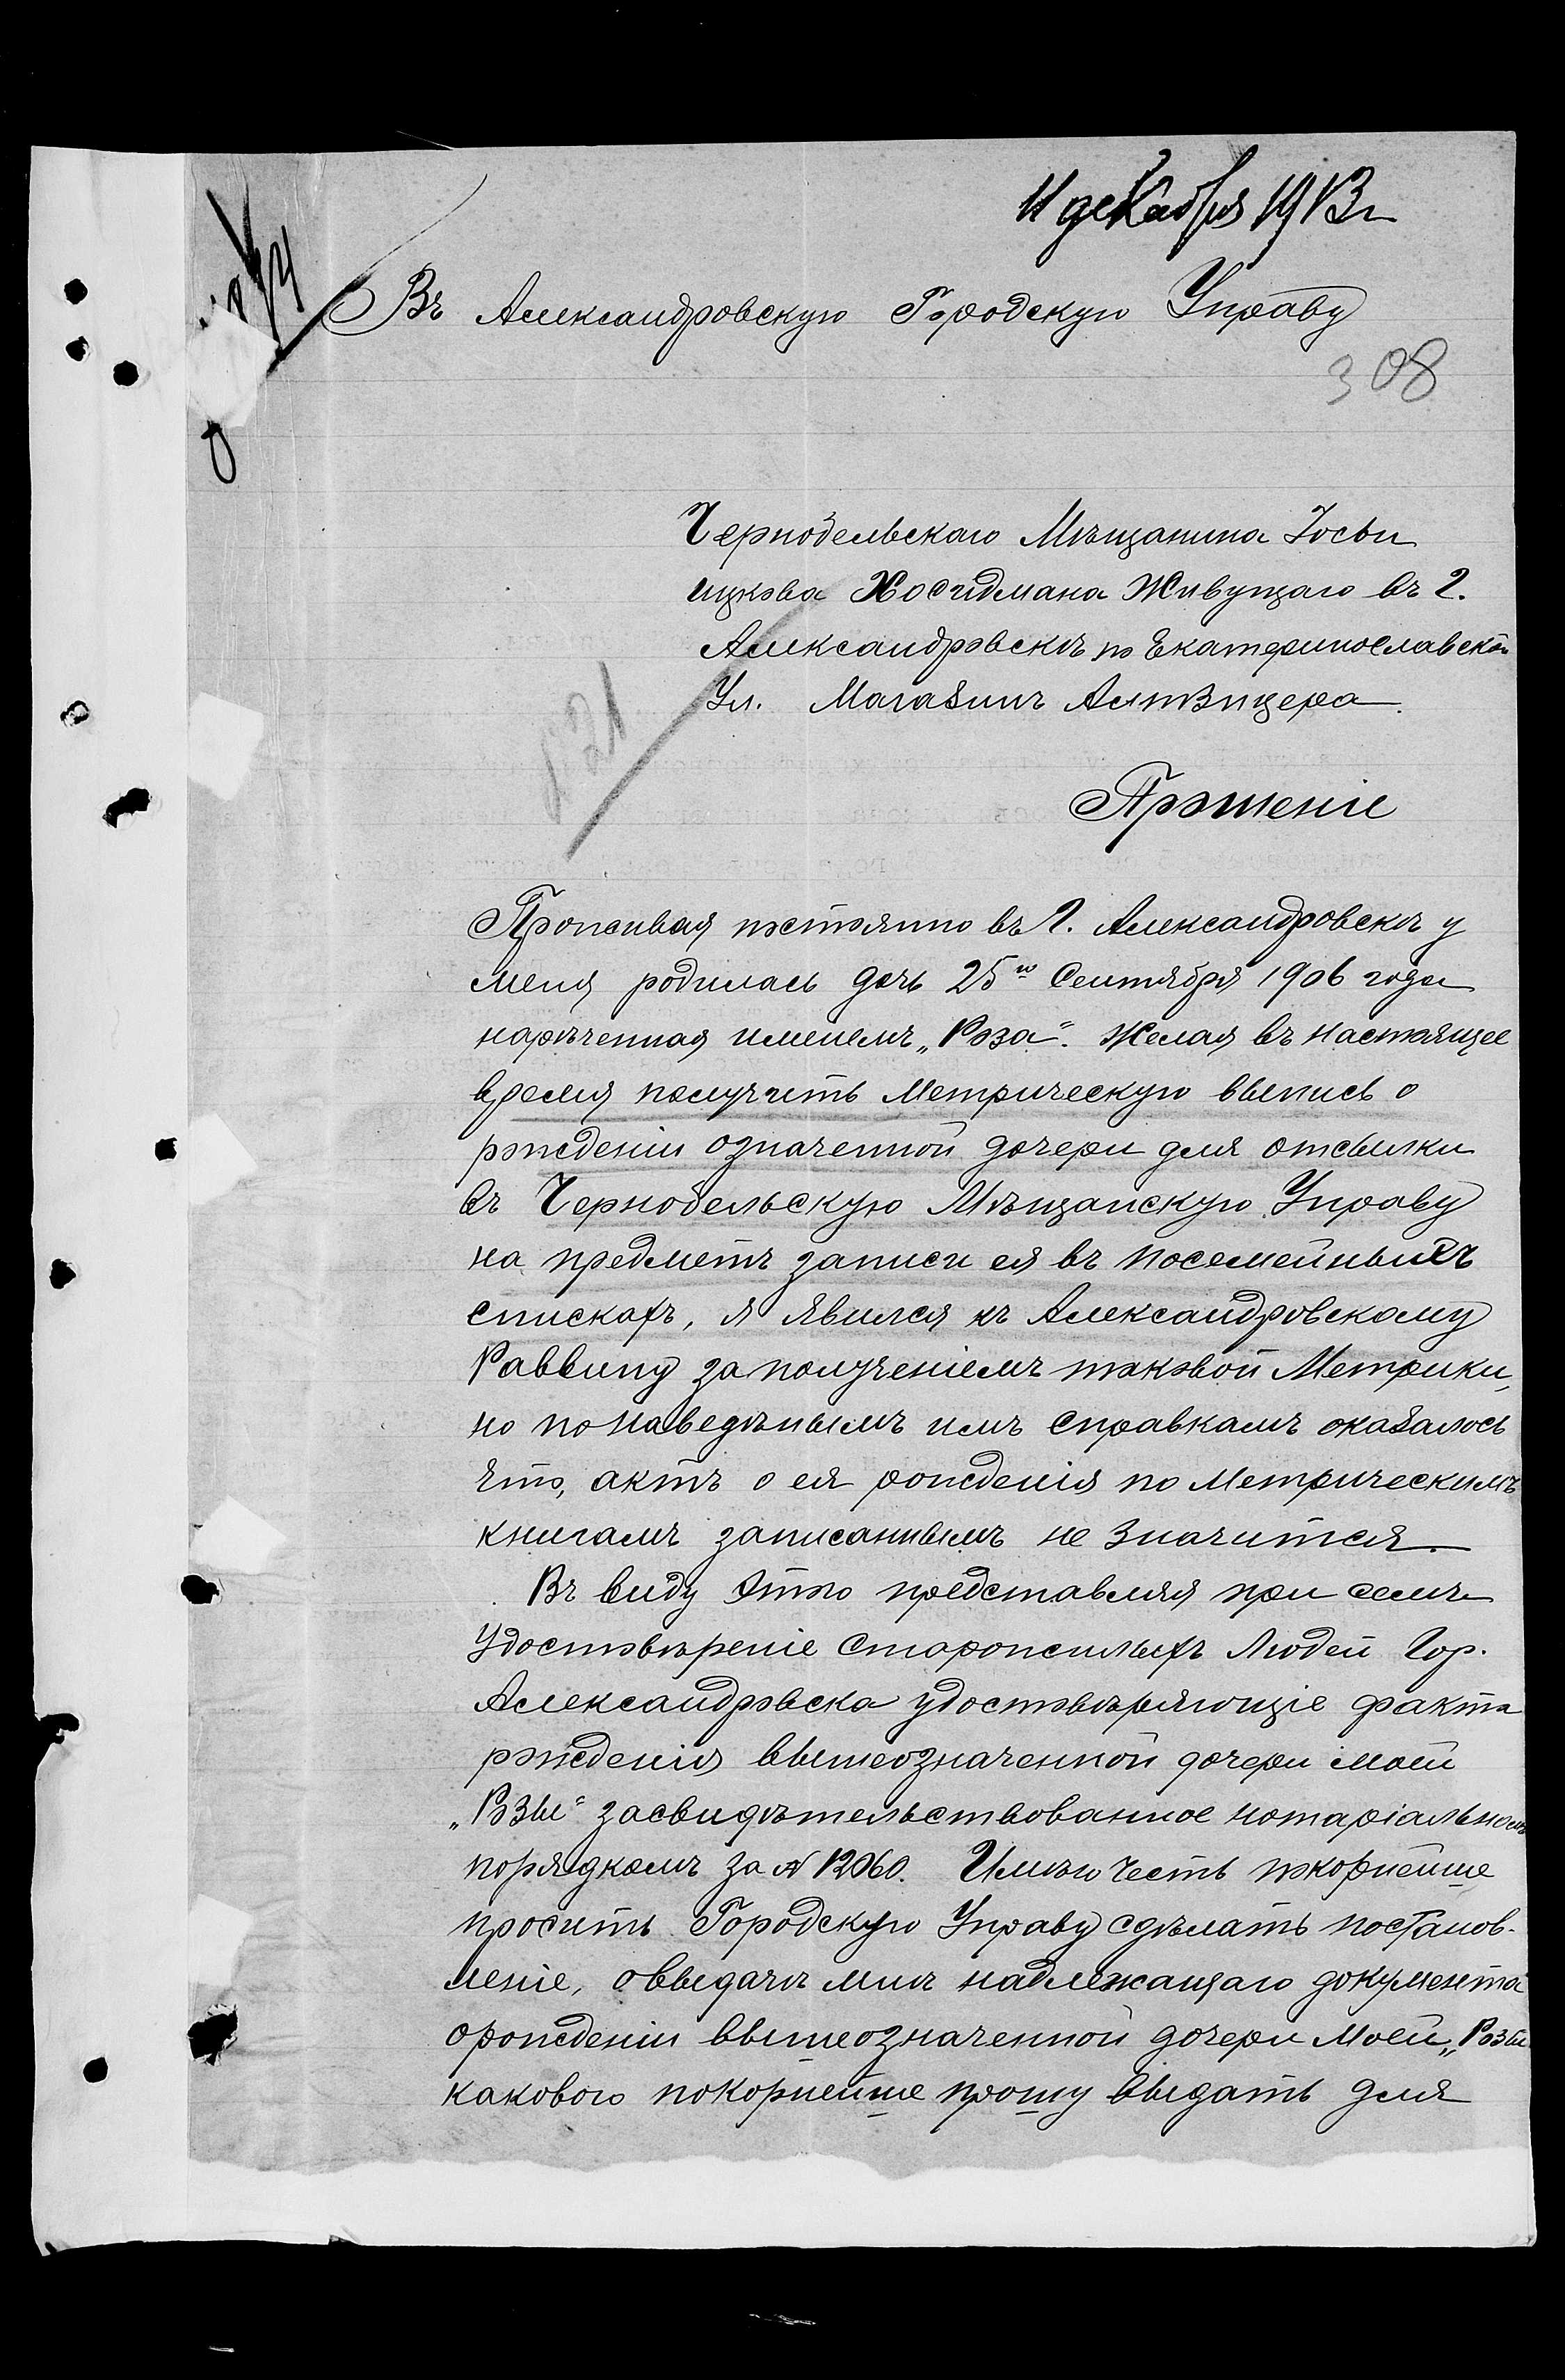 11 декабря 1913 г
Въ Александровскую Городскую Управу
308
Чернобельскаго Мѣщанина Іосьи
ицкова Хосидмана Живущаго въ г.
Александровскѣ по Екатеринославской
Ул. Магазинъ Альтвицера.
Прошеніе
Проживая постоянно въ г. Александровскѣ у
меня родилась дочь 25го Сентября 1906 года
нарѣченная именемъ „Роза“. Желая въ настоящее
время получить Метрическую выпись о
рожденіи означенной дочери для отсылки
въ Чернобельскую Мѣщанскую Управу
на предметъ записи ея въ посемейныхъ
спискахъ, я явился къ Александровскому
Раввину за полученіемъ таковой Метрики,
но по наведѣнымъ имъ справкамъ оказалось
что, актъ о ея рожденія по Метрическимъ
книгамъ записаннымъ не значится.
Въ виду этого представляя при семъ
удостовѣреніе старожилыхъ Людей Гор.
Александровска удостовѣряющіе факта
рожденія вышеозначенной дочери моей
„Розы“ засвидѣтельствованное нотаріальномъ
порядкомъ за № 12060. Имѣю честь покорнейше
просить Городскую Управу сдѣлать постанов-
леніе, о выдачѣ мнѣ надлежащаго документа
о рожденіи вышеозначенной дочери Моей „Розы
какового покорнейше прошу выдать для